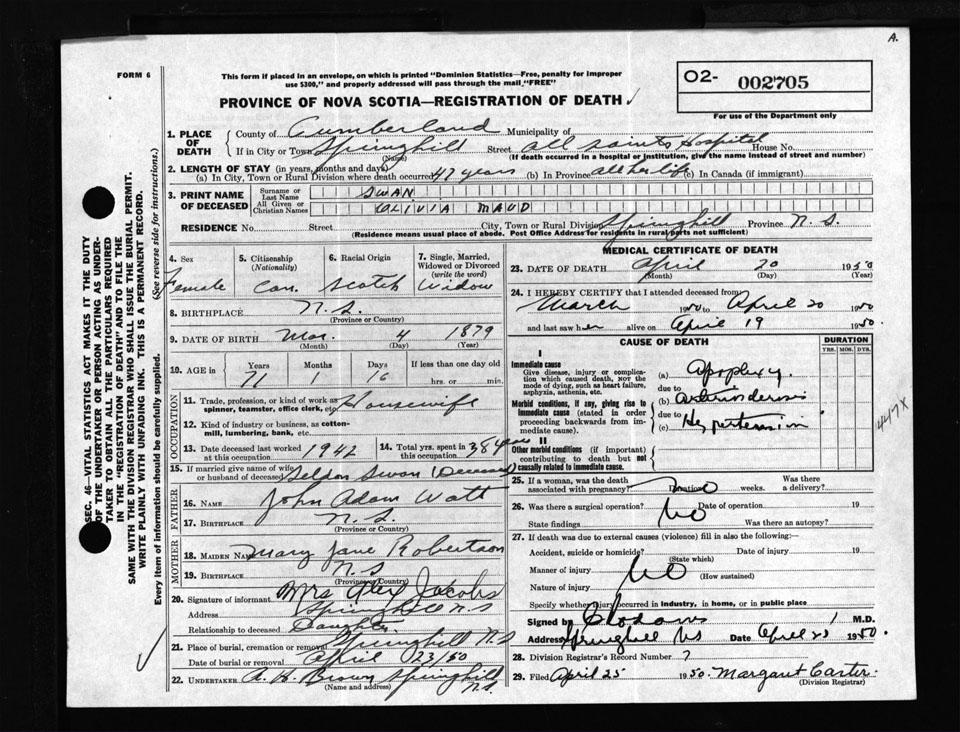 A.
FORM 6
This form if placed in an envelope, on which is printed "Dominion Statistics—Free, penalty for improper
use $300," and properly addressed will pass through the mail "FREE"
PROVINCE OF NOVA SCOTIA—REGISTRATION OF DEATH
02- 002705
For use of the Department only
SEC. 46—VITAL STATISTICS ACT MAKES IT THE DUTY
OF THE UNDERTAKER OR PERSON ACTING AS UNDER-
TAKER TO OBTAIN ALL THE PARTICULARS REQUIRED
IN THE "REGISTRATION OF DEATH" AND TO FILE THE
SAME WITH THE DIVISION REGISTRAR WHO SHALL ISSUE THE BURIAL PERMIT.
WRITE PLAINLY WITH UNFADING INK. THIS IS A PERMANENT RECORD.
Every item of information should be carefully supplied. (See reverse side for instructions.)
1. PLACE OF DEATH County of Cumberland Municipality of
If in City or Town Springhill Street All Saints Hospital House No.
(Name) (If death occurred in a hospital or institution, give the name instead of street and number)
2. LENGTH OF STAY (in years, months and days)
(a) In City, Town or Rural Division where death occurred 47 years (b) In Province all her life (c) In Canada (if immigrant)
3. PRINT NAME OF DECEASED Surname or Last Name SWAN
All Given or Christian Names OLIVIA MAUD
RESIDENCE No. Street City, Town or Rural Division Springhill Province N.S.
(Residence means usual place of abode. Post Office Address for residents in rural parts not sufficient)
4. Sex Female
5. Citizenship (Nationality) Can.
6. Racial Origin Scotch
7. Single, Married, Widowed or Divorced (write the word) Widow
8. BIRTHPLACE N.S.
(Province or Country)
9. DATE OF BIRTH Mar. 4 1879
(Month) (Day) (Year)
10. AGE in Years 71 Months 1 Days 16 If less than one day old hrs. or min.
OCCUPATION
11. Trade, profession, or kind of work as spinner, teamster, office clerk, etc. Housewife
12. Kind of industry or business, as cotton-mill, lumbering, bank, etc.
13. Date deceased last worked at this occupation 1942
14. Total yrs. spent in this occupation 38 years
15. If married give name of wife or husband of deceased Seldon Swan (Deceased)
FATHER
16. NAME John Adam Watt
17. BIRTHPLACE N.S.
(Province or Country)
MOTHER
18. MAIDEN NAME Mary Jane Robertson
19. BIRTHPLACE N.S
(Province or Country)
20. Signature of informant Mrs Alex Jacobs
Address Springhill N.S
Relationship to deceased Daughter
21. Place of burial, cremation or removal Springhill N.S
Date of burial or removal April 23/50
22. UNDERTAKER A. H. Brown Springhill N.S.
(Name and address)
MEDICAL CERTIFICATE OF DEATH
23. DATE OF DEATH April 20 1950
(Month) (Day) (Year)
24. I HEREBY CERTIFY that I attended deceased from
March 1950 to April 20 1950
and last saw her alive on April 19 1950.
CAUSE OF DEATH DURATION
YRS. MOS. DYS.
I
Immediate cause
Give disease, injury or complication which caused death, not the mode of dying, such as heart failure, asphyxia, asthenia, etc.
(a) Apoplexy
due to
Morbid conditions, if any, giving rise to immediate cause (stated in order proceeding backwards from immediate cause).
(b)
due to
(c) Hypertension
II
Other morbid conditions (if important) contributing to death but not causally related to immediate cause.
447X
25. If a woman, was the death associated with pregnancy? no Duration weeks. Was there a delivery?
26. Was there a surgical operation? No Date of operation 19
State findings Was there an autopsy?
27. If death was due to external causes (violence) fill in also the following:—
Accident, suicide or homicide? Date of injury 19
(State which)
Manner of injury No
(How sustained)
Nature of injury
Specify whether injury occurred in industry, in home, or in public place
Signed by M.D.
Address Springhill NS Date April 25 1950.
28. Division Registrar's Record Number 7
29. Filed April 25 1950. Margaret Carter.
(Division Registrar)